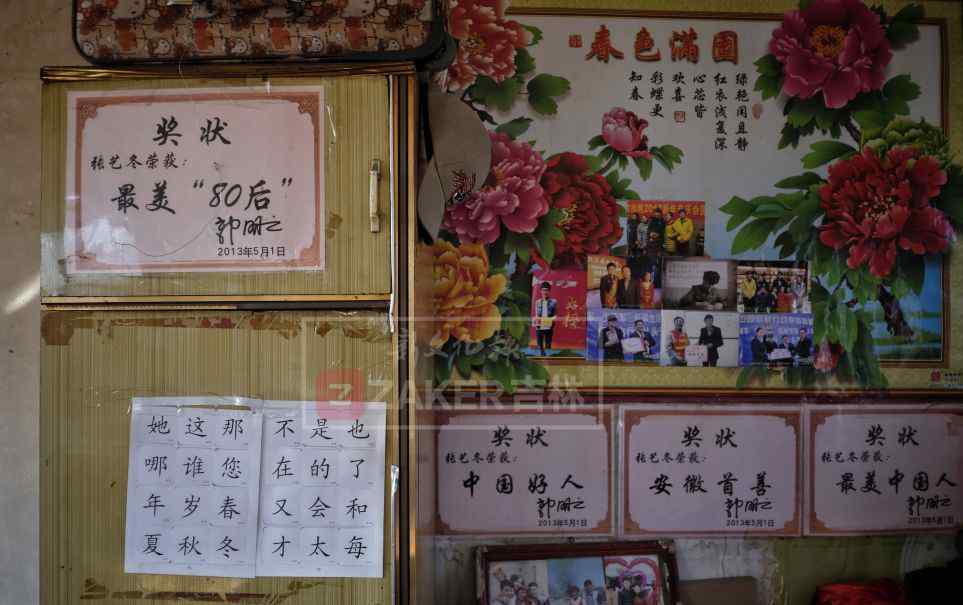 奖状
张艺冬荣获：
最美“80后”
郭明之
2013年5月1日
她这那
哪谁您
年岁春
夏秋冬
不是也
在的了
又会和
才太每
春色满圆
绿艳闲且静
红衣浅复深
心蕊皆
欢喜
彩蝶更
知春
ZAKER吉林
奖状
张艺冬荣获：
中国好人
2013年5月1日
奖状
张艺冬荣获：
安徽首善
2013年5月1日
奖状
张艺冬荣获：
最美中国人
2013年5月1日